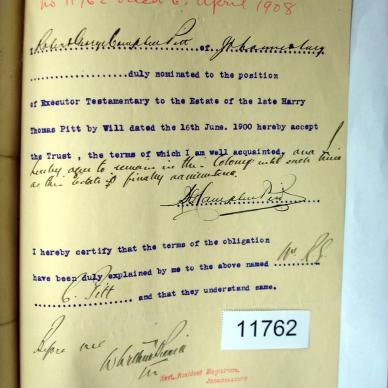 No 11762 dated 6. April 1908
I Robert George Campbell Pitt of Johannesburg
duly nominated to the position
of Executor Testamentary to the Estate of the late Harry
Thomas Pitt by Will dated the 16th June. 1900 hereby accept
the Trust , the terms of which I am well acquainted, and I
hereby agree to remain in the Colony until such time
as the estate is finally
R G Campbell Pitt
I hereby certify that the terms of the obligation
have been duly explained by me to the above named Mr R.G.
C. Pitt and that they understand same.
Before me
11762
Asst. Resident Magistrate,
Johannesburg